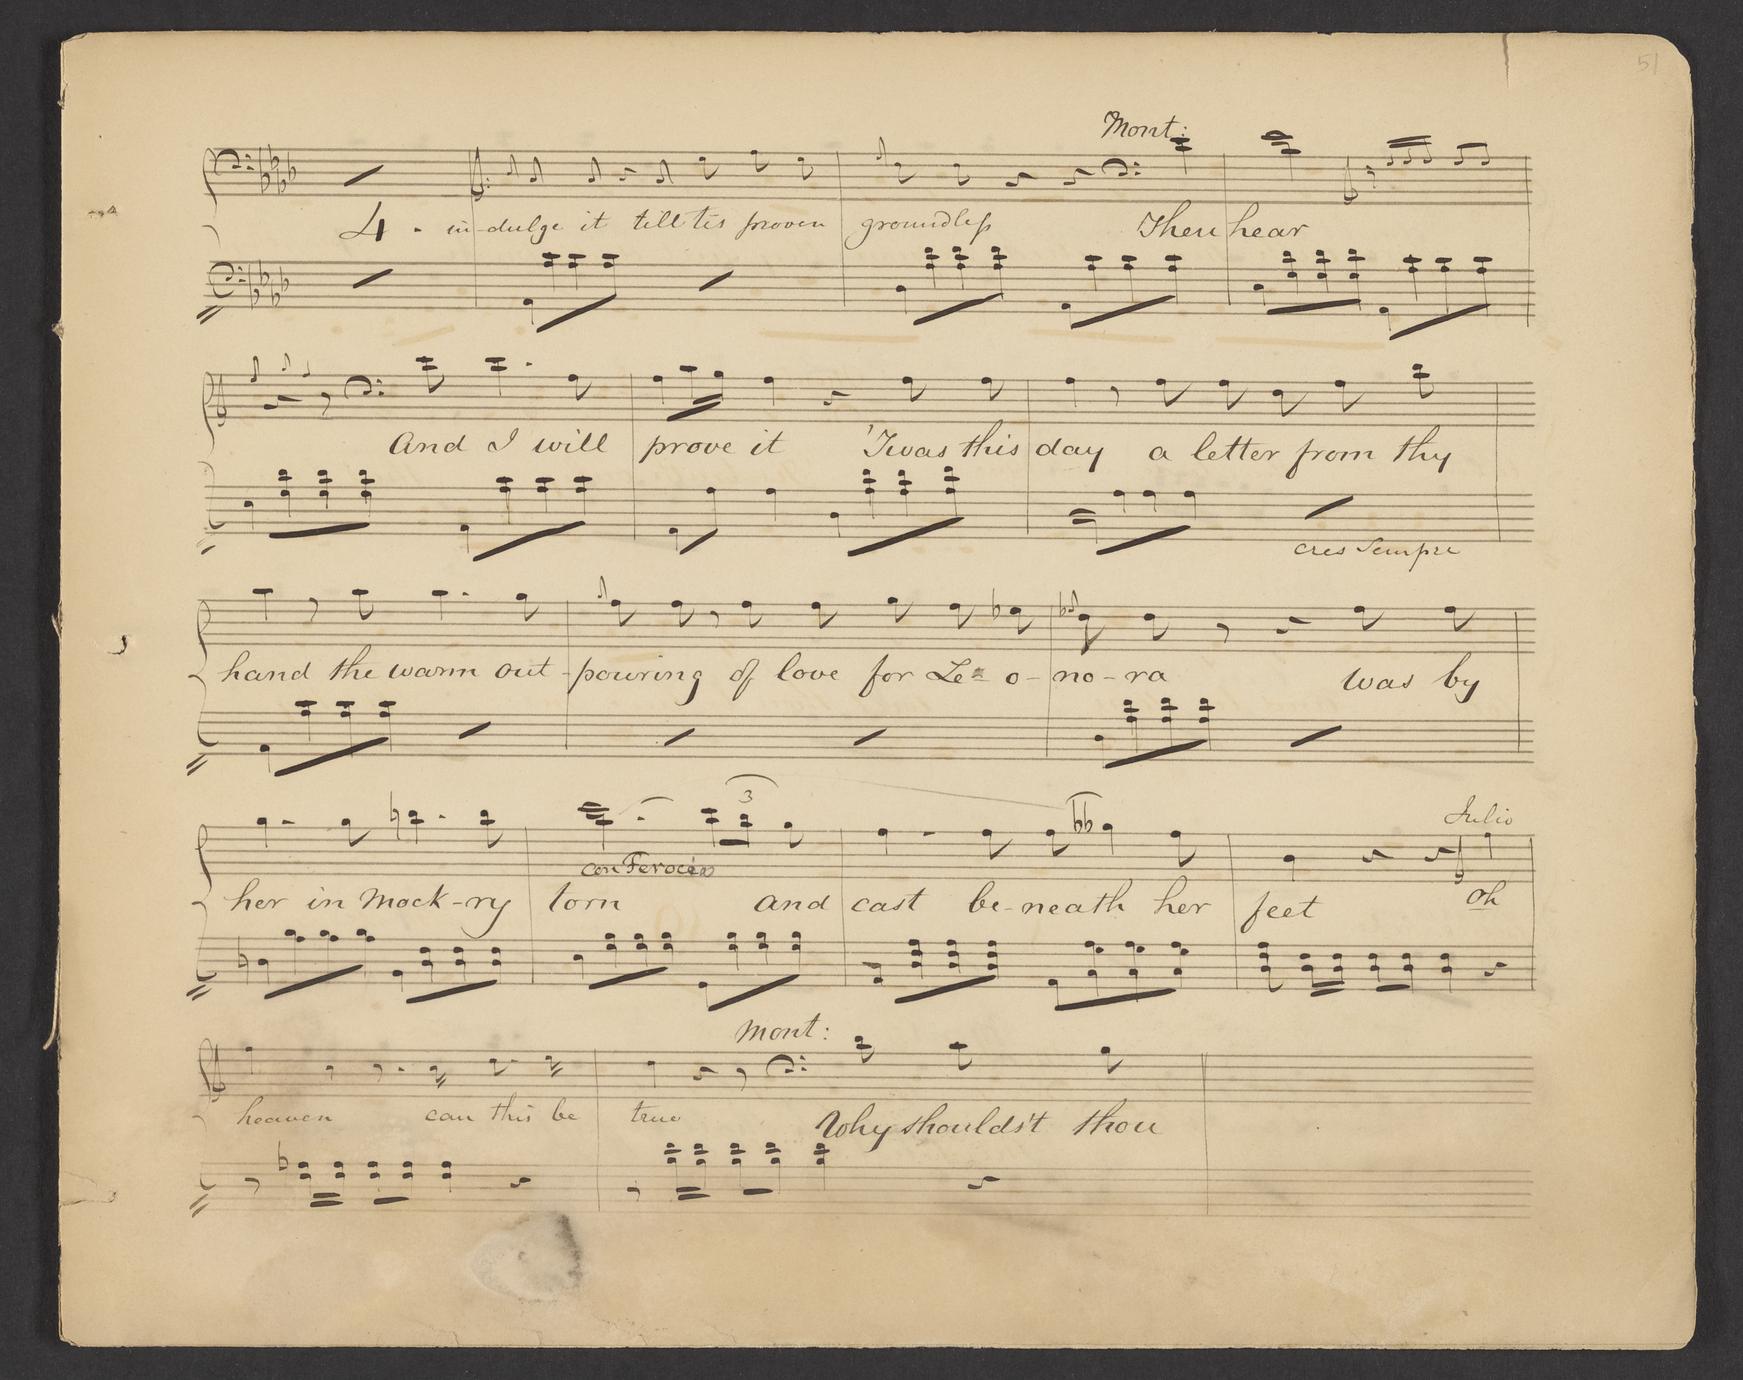 51
Mont:
4 - in-dulge it till tis proven groundless Then hear
And I will prove it 'Twas this day a letter from thy
cres Sempre
hand the warm out-pouring of love for Le- o-no-ra was by
3
Julio
con Feroci
her in Mock-ry torn and cast be-neath her feet Oh
Mont:
heaven can this be true Why shoulds't thou